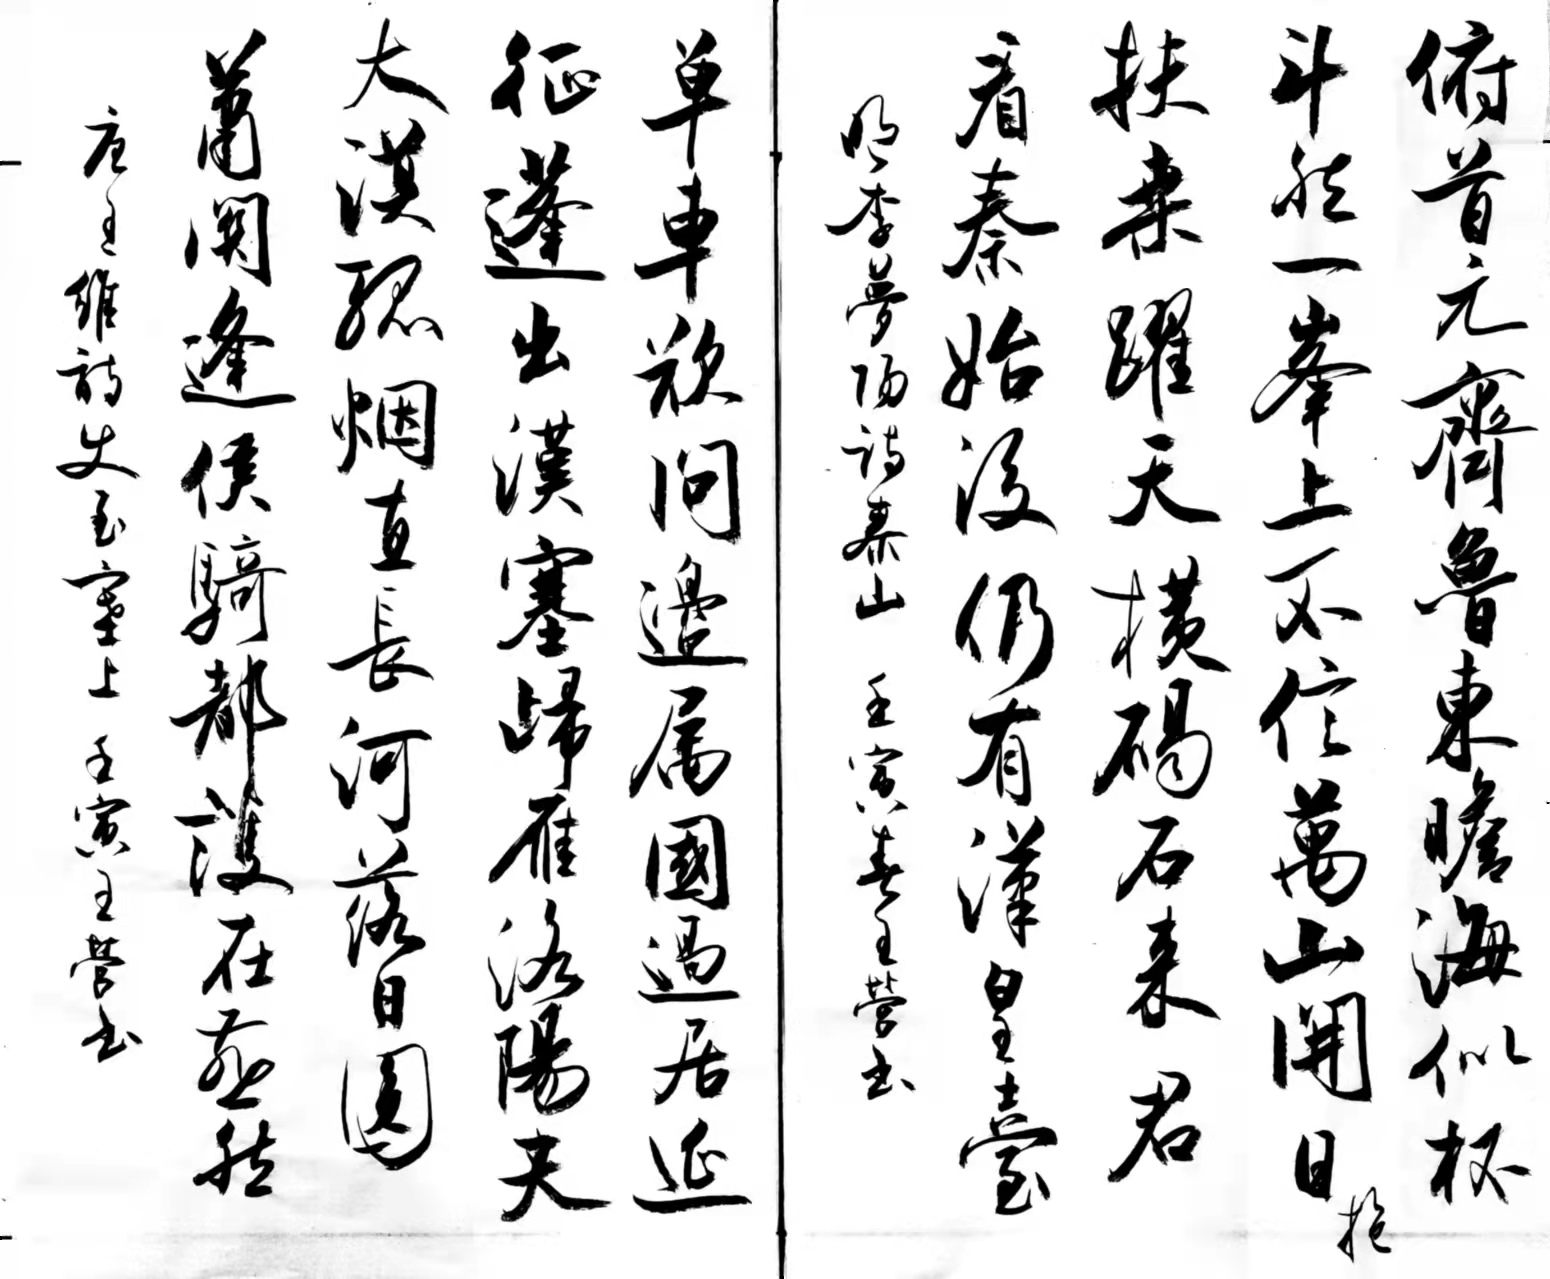 俯首无齊魯東瞻海似杯
斗然一峯上不信萬山開日抱
扶桒躍天橫碣石来君
看秦始後仍有漢皇臺
明李夢陽詩泰山 壬寅春王營书
单車欲問邊属國過居延
征蓬出漢塞歸雁洛陽夫
大漠孤烟直長河落日圓
蕭関逢侯騎都護在燕然
唐王維詩史至塞上 壬寅王營书